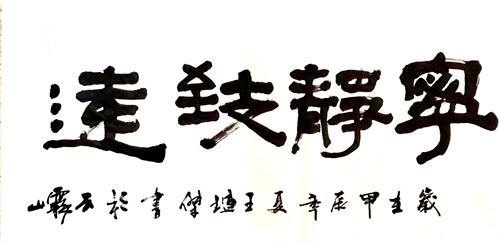 寧靜致遠
歲在甲辰年夏王傑書於云霧山